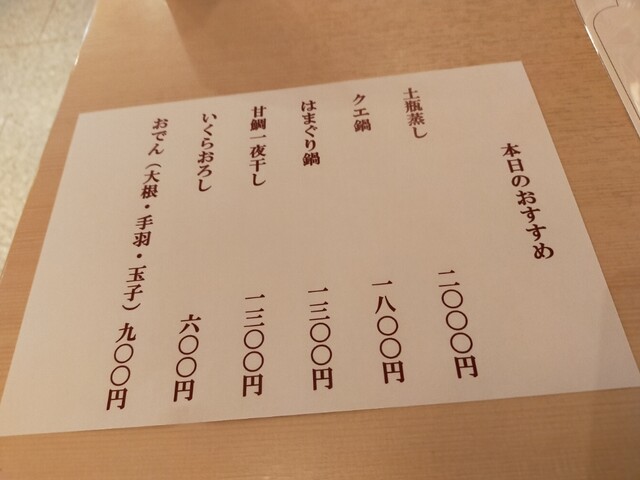 本日のおすすめ
土瓶蒸し 二〇〇〇円
クエ鍋 一八〇〇円
はまぐり鍋 一三〇〇円
甘鯛一夜干し 一三〇〇円
いくらおろし 六〇〇円
おでん（大根・手羽・玉子）九〇〇円